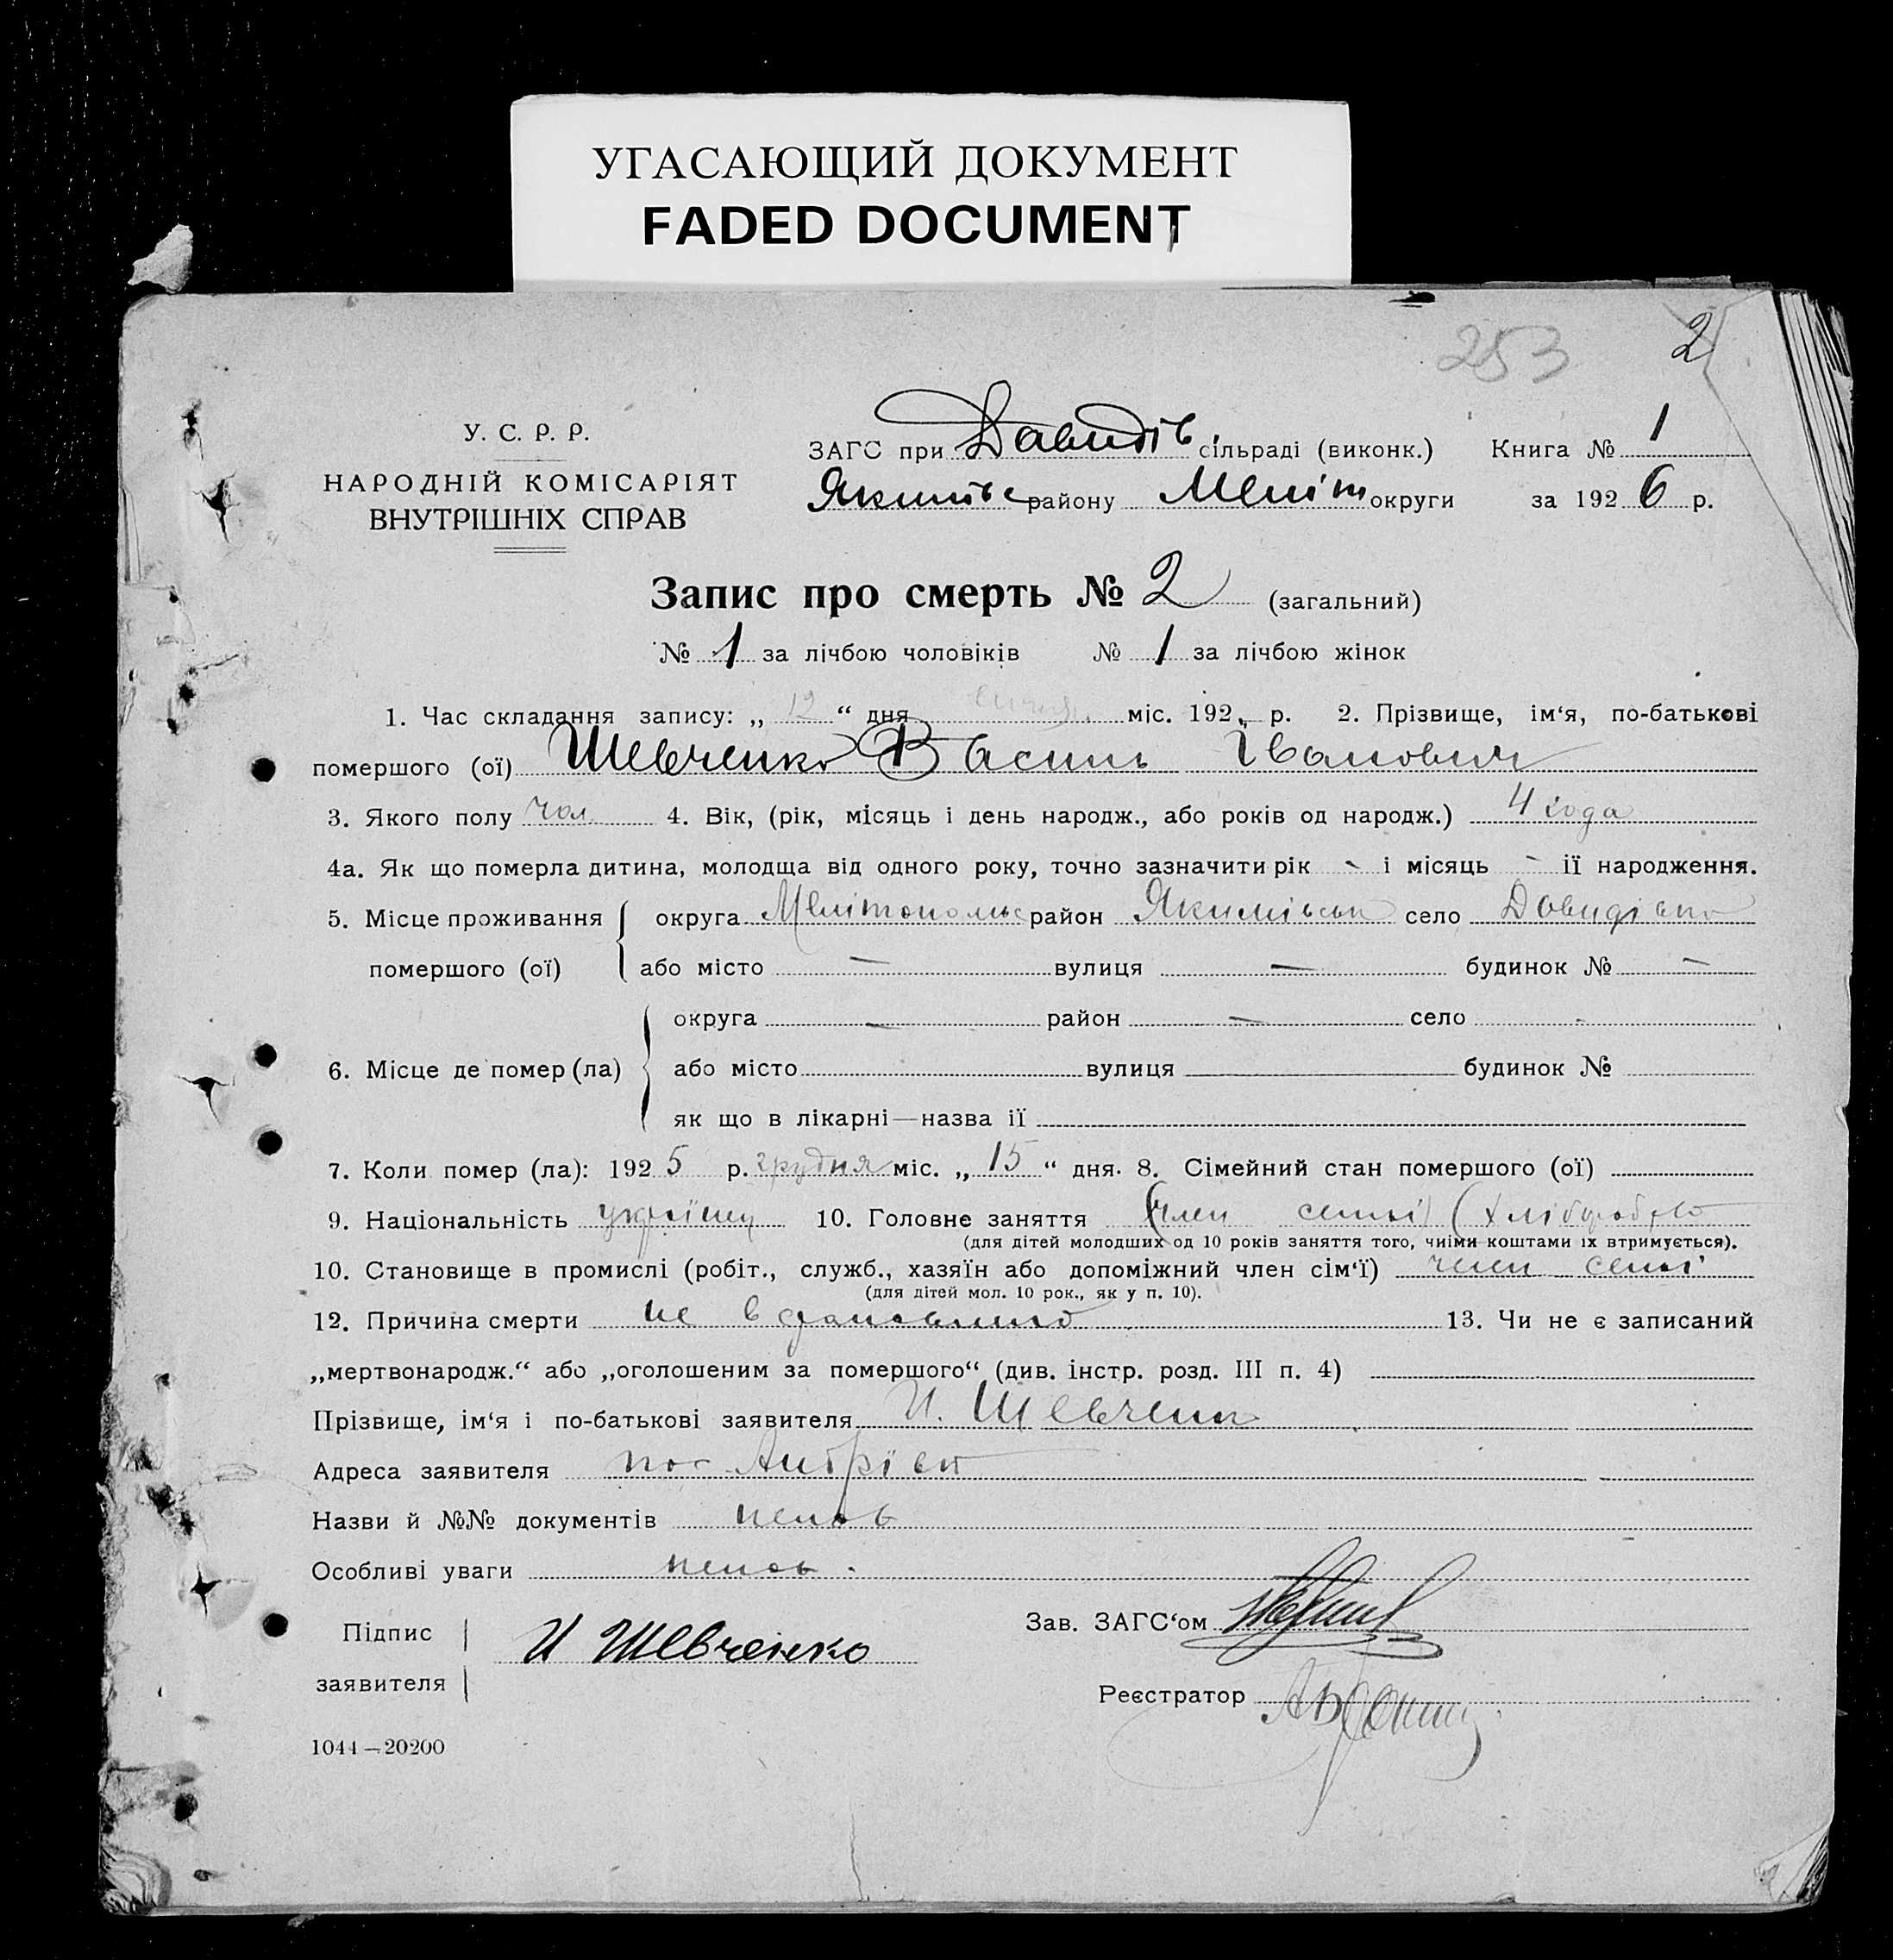 УГАСАЮЩИЙ ДОКУМЕНТ
FADED DOCUMENT
253 2
У. С. Р. Р.
НАРОДНІЙ КОМІСАРІЯТ
ВНУТРІШНІХ СПРАВ
ЗАГС при Давидів. сільраді (виконк.) Книга № 1
Якимівс району Меліт округи за 1926 р.
Запис про смерть № 2 (загальний)
№ 1 за лічбою чоловіків № 1 за лічбою жінок
1. Час складання запису: „ 12 “ дня січня міс. 192 р. 2. Прізвище, ім‘я, по-батькові
помершого (ої) Шевченко Василь Іванович
3. Якого полу чол. 4. Вік, (рік, місяць і день народж., або років од народж.) 4 года
4а. Як що померла дитина, молодща від одного року, точно зазначити рік - і місяць - її народження.
5. Місце проживання округа Мелітопольс район Якимівськ село Давидівка
помершого (ої) або місто — вулиця — будинок № —
округа — район — село -
6. Місце де помер (ла) або місто вулиця будинок №
як що в лікарні—назва її
7. Коли помер (ла): 1925 р. грудня міс. „ 15 “ дня. 8. Сімейний стан помершого (ої)
9. Національність українец 10. Головне заняття (член семьі) (хлібороб
(для дітей молодших од 10 років заняття того, чиїми коштами їх втримується).
10. Становище в промислі (робіт., служб., хазяїн або допоміжний член сім‘ї) член семьі
(для дітей мол. 10 рок., як у п. 10).
12. Причина смерти не встановлено 13. Чи не є записаний
„мертвонародж.“ або „оголошеним за помершого“ (див. інстр. розд. III п. 4)
Прізвище, ім‘я і по-батькові заявителя И. Шевченко
Адреса заявителя пос Андрієв
Назви й №№ документів
Особливі уваги
Підпис
заявителя И Шевченко
Зав. ЗАГС‘ом
Реєстратор
1044—20200